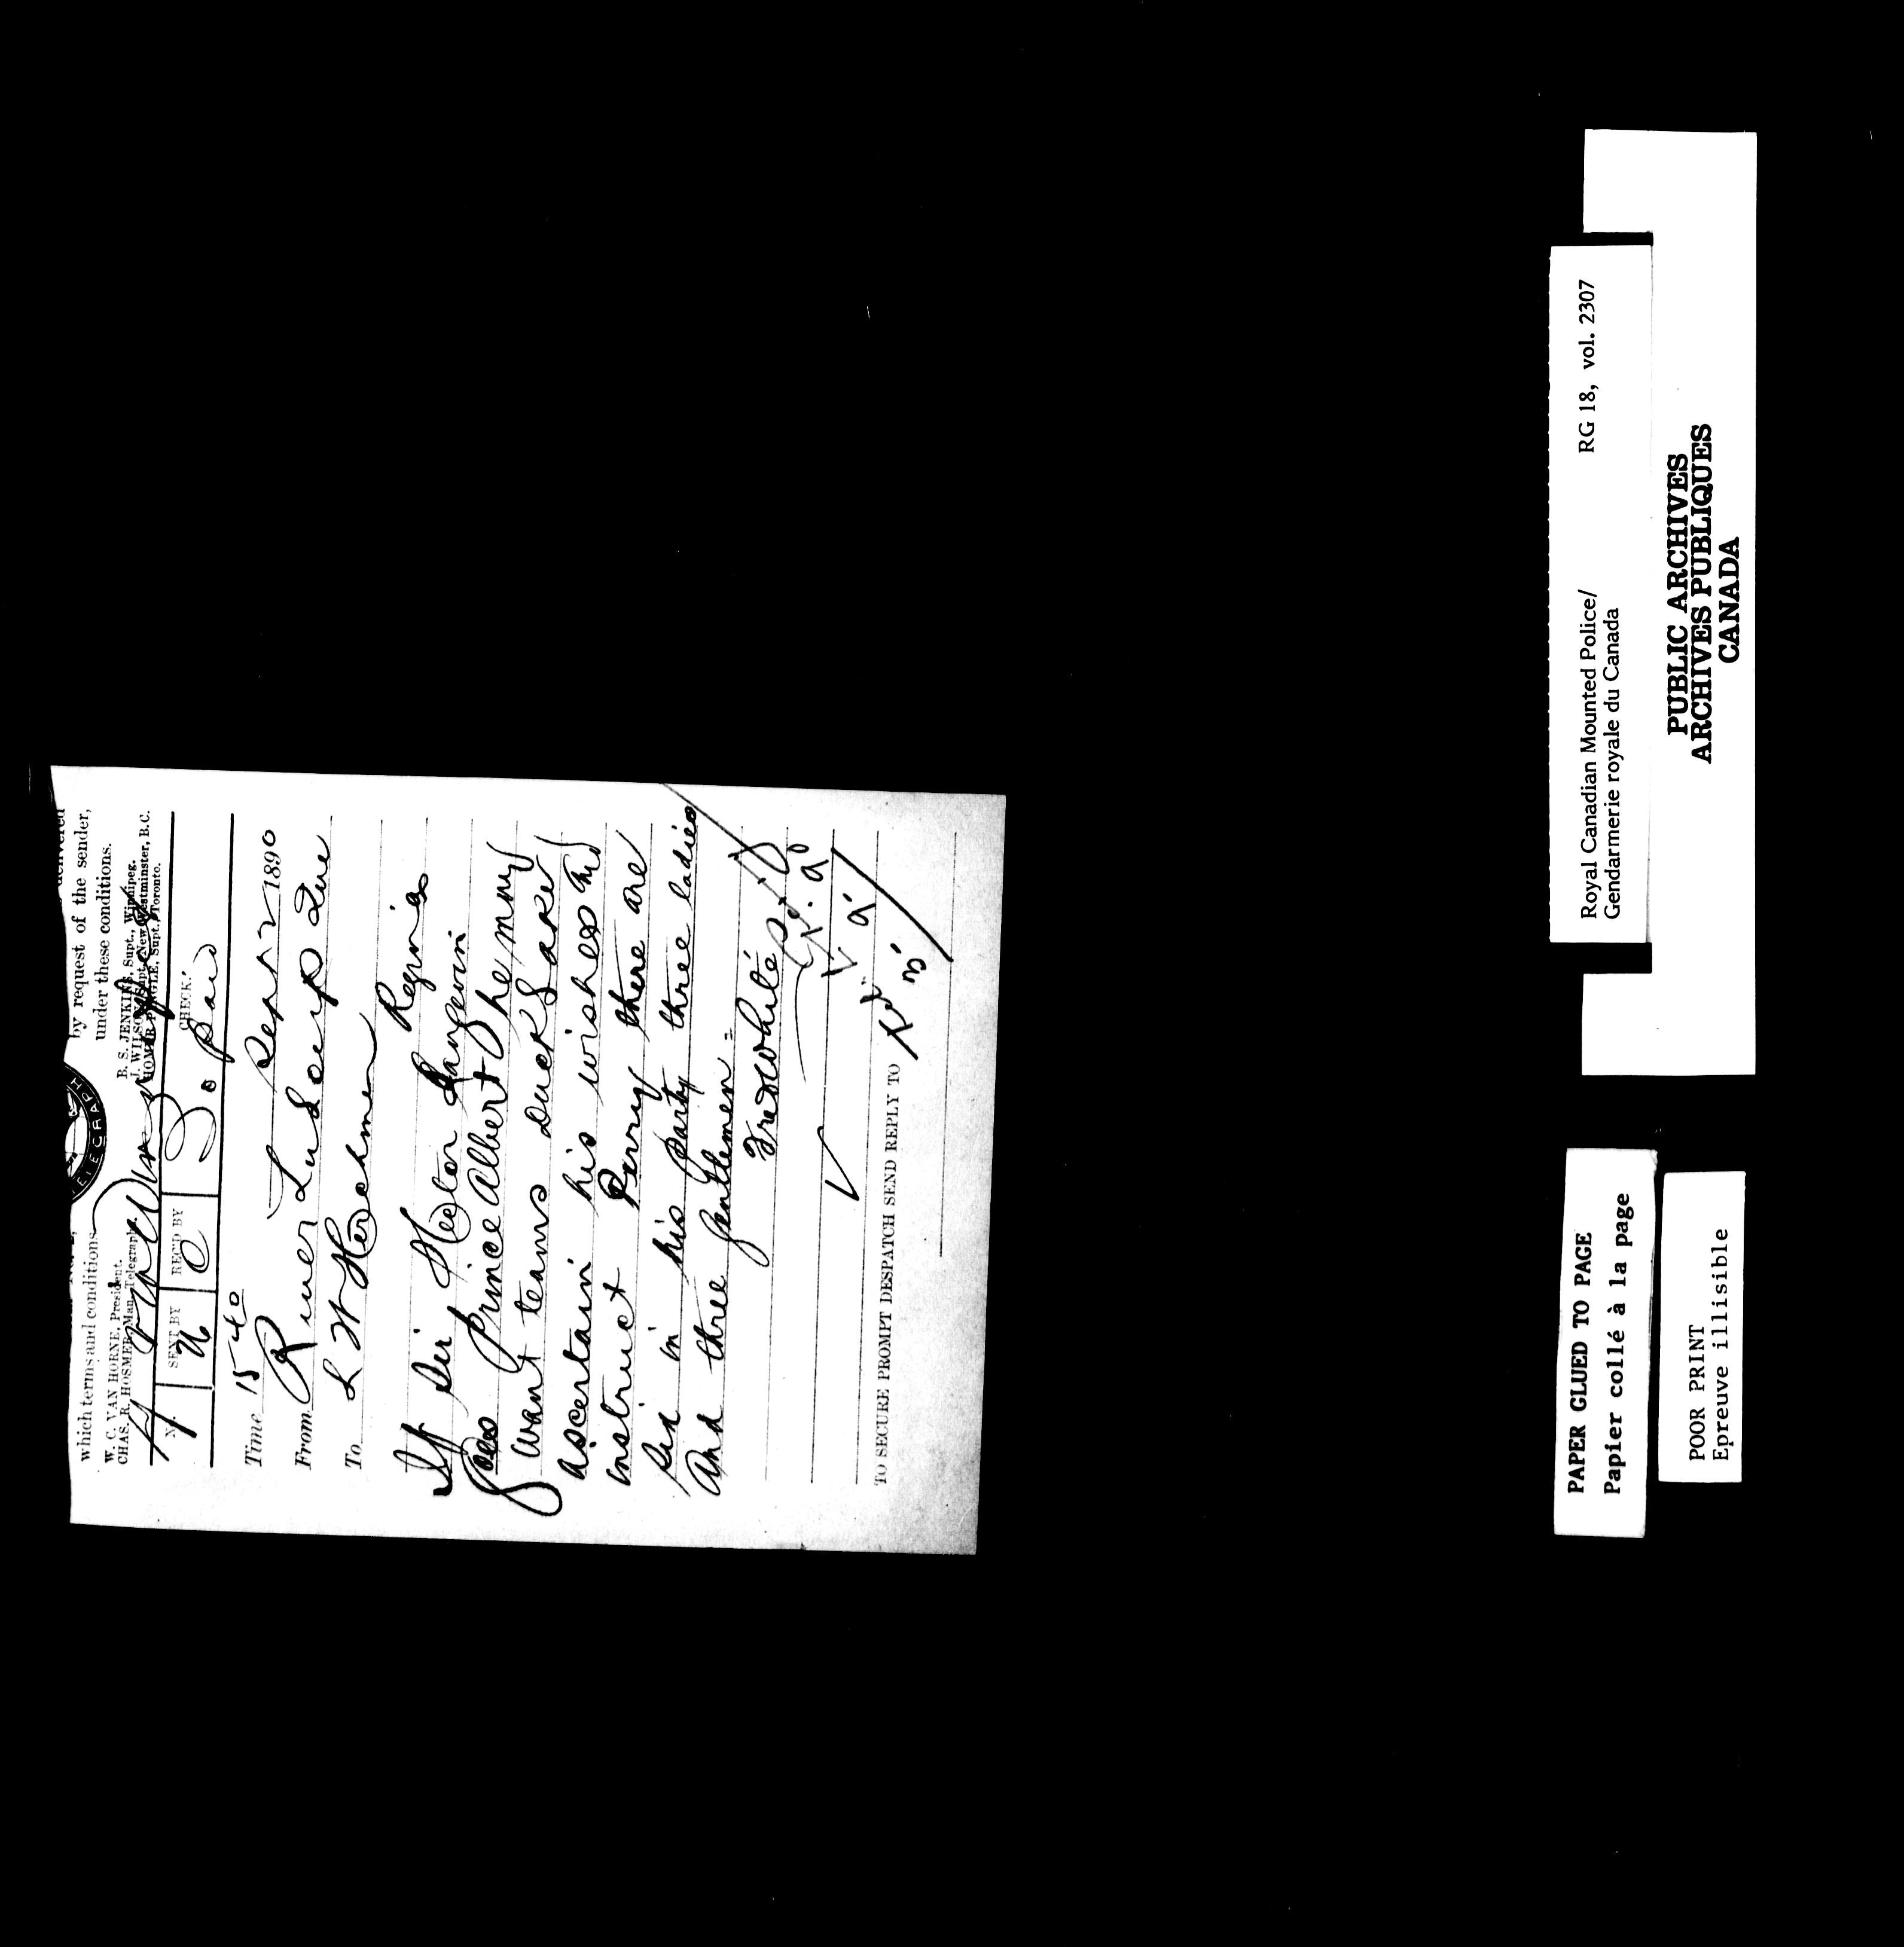 by request of the sender,
which terms and conditions
under these conditions.
W. C. VAN HORNE, President.
B. S. JENKINS, Supt., Winnipeg.
CHAS. R. HOSMER, Man. Telegraph.
J. WILSON, Supt. New Westminster, B.C.
HOMER PINGLE, Supt., Toronto.
TELEGRAPH
SENT BY
REC'D BY
CHECK.
30 paid
Time 15 40
Sept 2 1890
From River du Loup Que
To L W Herchmer
Regina
If Sir Hector Langevin
goes Prince Albert & he may
want teams Duck Lake
ascertain his wishes and
instruct Perry there are
six in his party three ladies
and three gentlemen =
Fred White
TO SECURE PROMPT DESPATCH SEND REPLY TO
Royal Canadian Mounted Police/ RG 18, vol. 2307
Gendarmerie royale du Canada
PUBLIC ARCHIVES
ARCHIVES PUBLIQUES
CANADA
PAPER GLUED TO PAGE
Papier collé à la page
POOR PRINT
Epreuve illisible